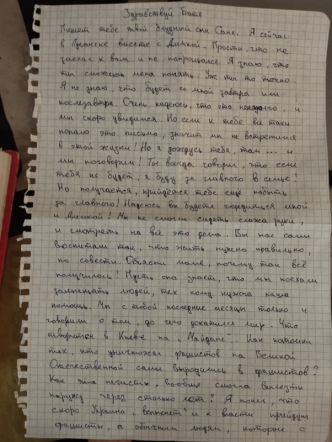 Здравствуй Батя
Пишет тебе твой блудной сын Саня. А сейчас
в Луганске вместе с Лёшкой. Просто, что не
заехал к вам и не попрощался. Я знаю, что
ты сможешь меня понять. Уж ты то точно.
Я не знаю, что будет со мной завтра или
послезавтра. Очень надеюсь, что это ненадолго, и
мы скоро увидимся. Но если к тебе всё таки
попало это письмо, значит мы не встретимся
в этой жизни! Но я дождусь тебя, там и
мы поговорим! Ты всегда говорил, что если
тебя не будет, я буду за главного в семье!
Но получается, прийдётся тебе ещё побыть
за главного! Надеюсь вы будете гордиться мной
и Лёшкой! Мы не смогли сидеть сложа руки
и смотреть на всё это дома. Вы нас сами
воспитали так, что жить нужно правильно
по совести. Объясни маме, почему так всё
получилось! Пусть она знает, что мы поехали
защищать людей, тех кому нужна наша
помощь. Мы с тобой последние месяцы только и
говорили о том, до чего докатился мир. Что
творится в Киеве на Майдане. Как потомки
тех, кто уничтожал фашистов на Великой
Отечественной сами выродились в фашистов?
Как эта нечисть, вообще смогла вылезти
наружу через столько лет? Я понял, что
скоро Украина, и к власти прийдут
фашисты, а обычным людям, которые с